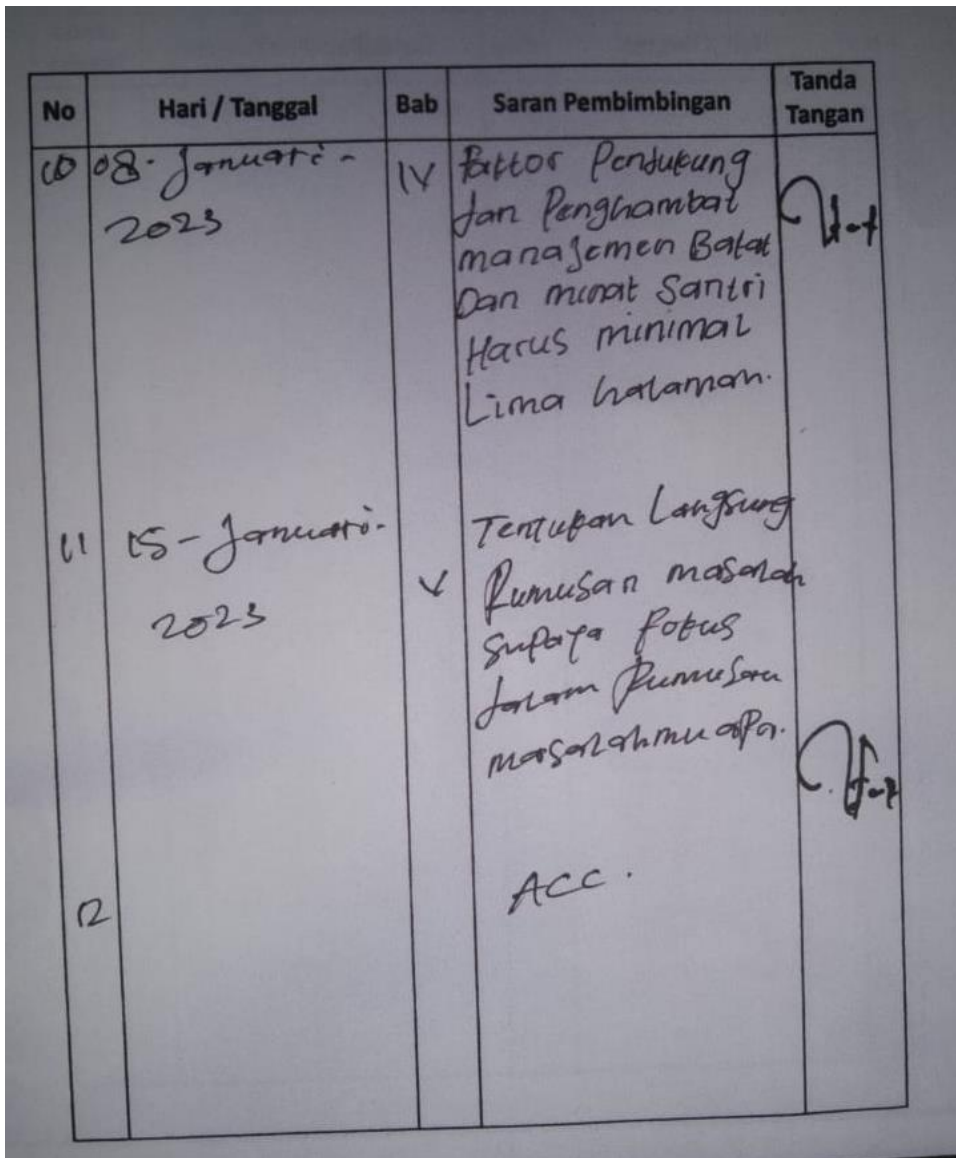 No Hari / Tanggal Bab Saran Pembimbingan Tanda Tangan
10 08. Januari - IV Faktor Pendukung
2023 dan Penghambat
manajemen Bakat
Dan minat Santri
Harus minimal
Lima halaman.
11 15 - Januari - V Tentukan Langsung
2023 Rumusan masalah
supaya fokus
dalam Rumusan
masalahmu apa.
12 ACC.